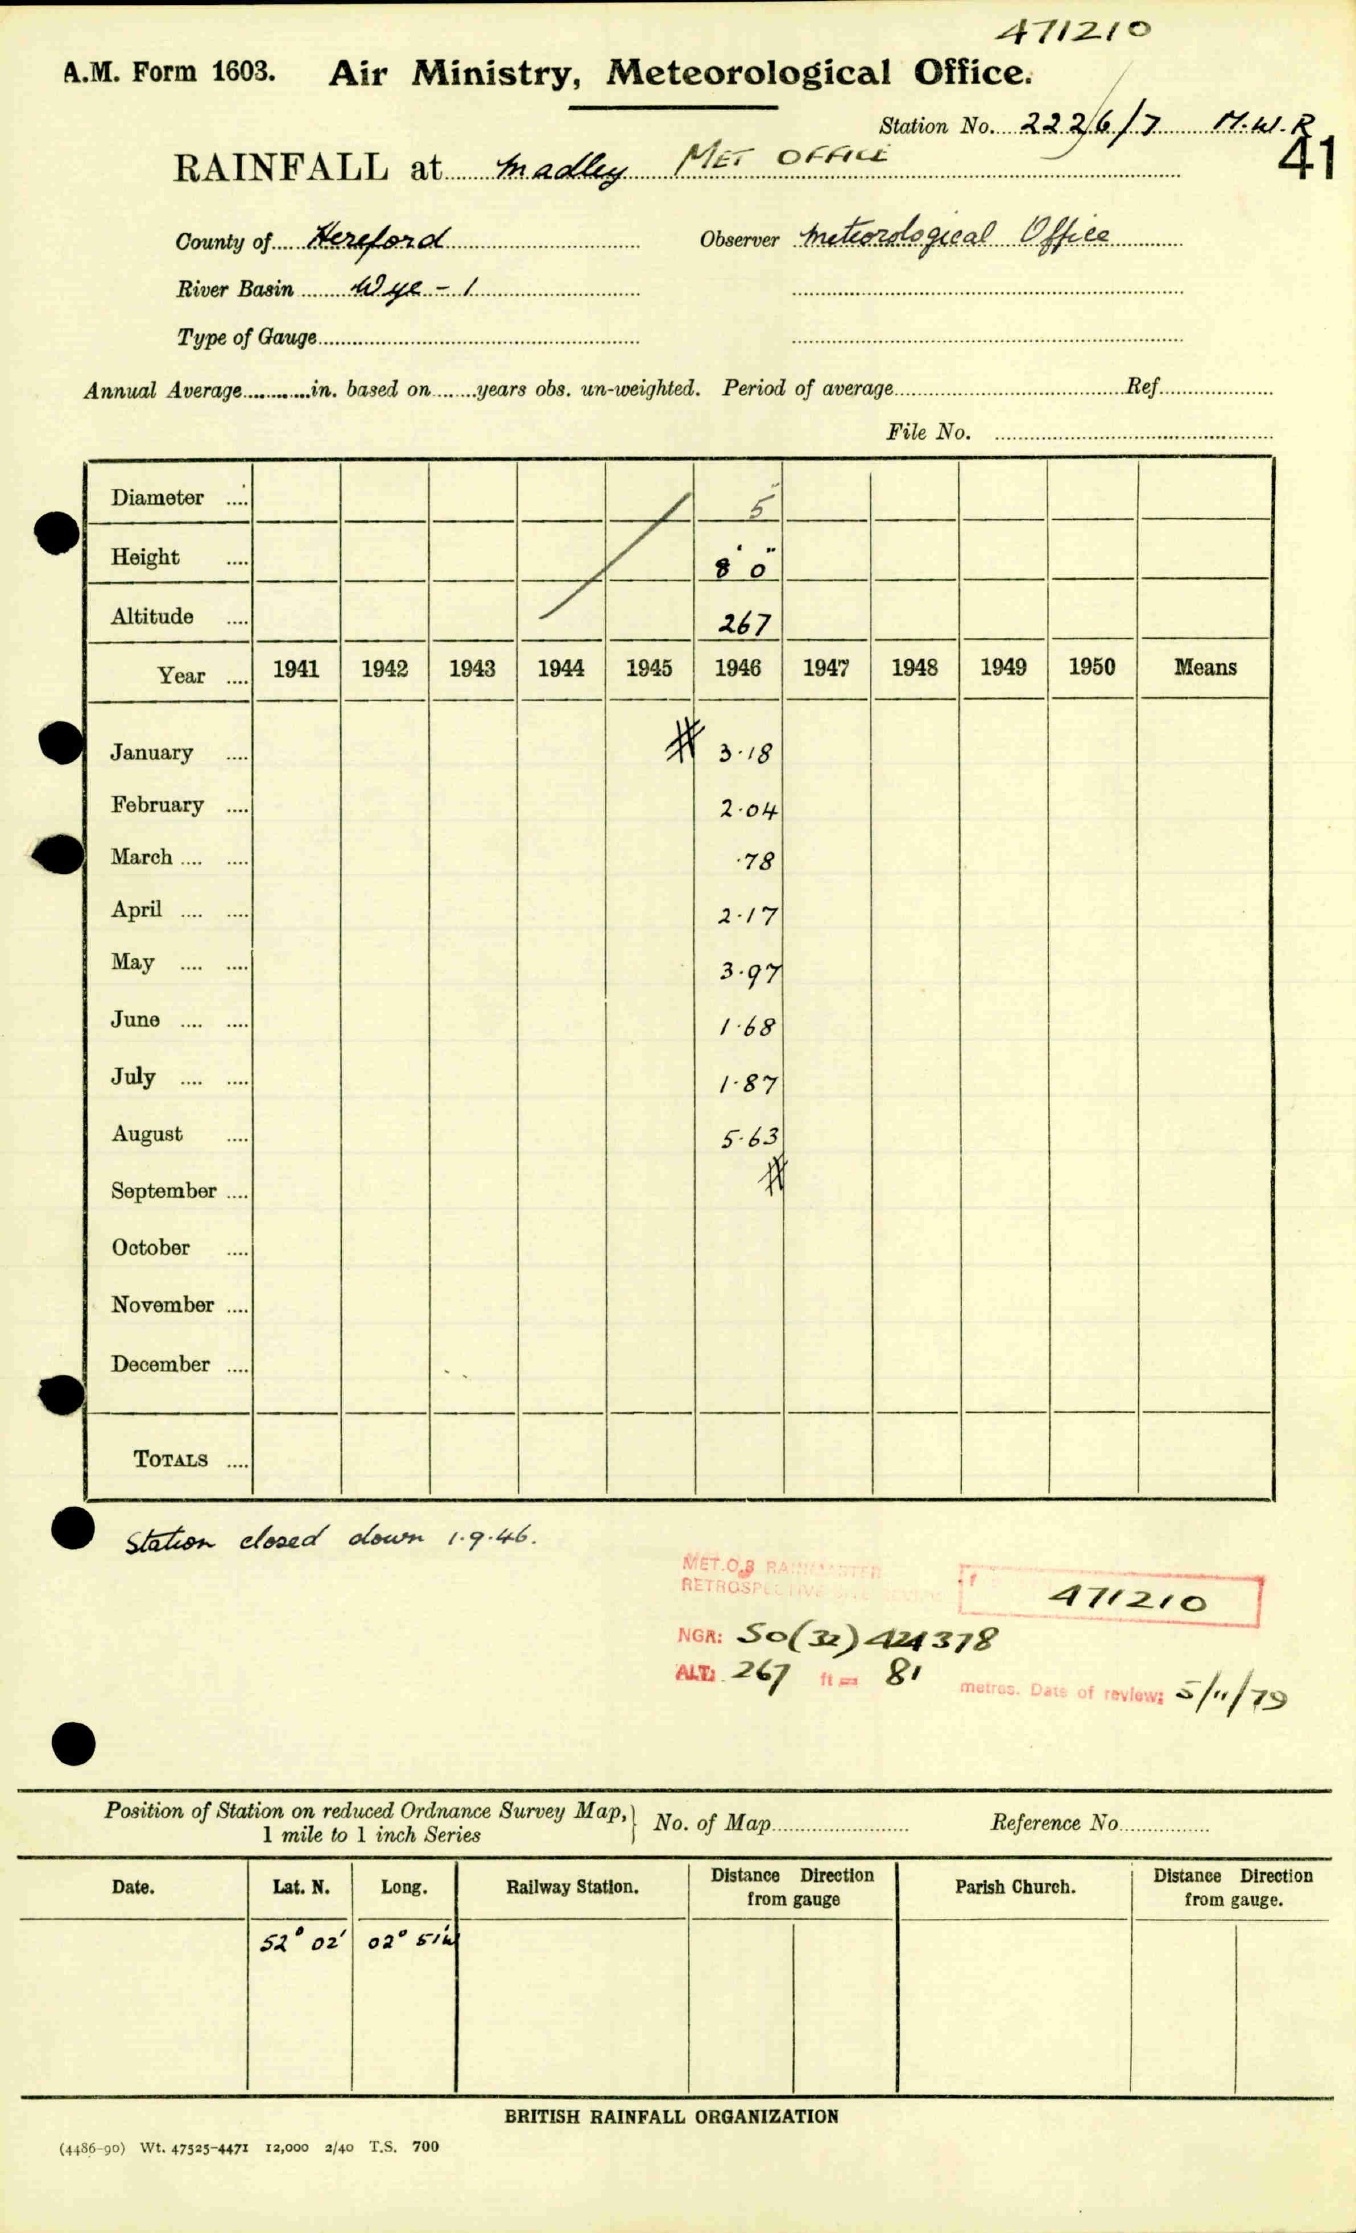 471210
A.M. Form 1603. Air Ministry, Meteorological Office.
Station No. 2226/7 M.W.R
41
RAINFALL at Madley MET OFFICE
County of Hereford Observer Meteorological Office
River Basin Wye - 1
Type of Gauge
Annual Average in. based on years obs. un-weighted. Period of average Ref.
File No.
Diameter 5"
Height 8' 0"
Altitude 267
Year 1941 1942 1943 1944 1945 1946 1947 1948 1949 1950 Means
January # 3·18
February 2·04
March ·78
April 2·17
May 3·97
June 1·68
July 1·87
August 5·63
September #
October
November
December
TOTALS
Station closed down 1.9.46.
MET.O.8 RAINMASTER
RETROSPECTIVE
471210
NGR: SO(32)424378
ALT: 267 ft = 81 metres. Date of review: 5/11/79
Position of Station on reduced Ordnance Survey Map,
1 mile to 1 inch Series
No. of Map Reference No.
Date. Lat. N. Long. Railway Station. Distance from gauge Direction Parish Church. Distance Direction from gauge.
52° 02' 02° 51'W
BRITISH RAINFALL ORGANIZATION
(4486-90) Wt. 47525-4471 12,000 2/40 T.S. 700